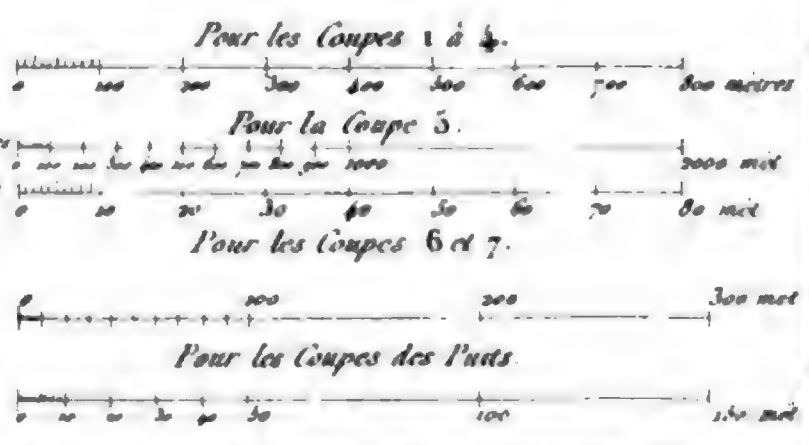 Pour les Coupes 1 à 4.
0 100 200 300 400 500 600 700 800 mètres
Pour la Coupe 5.
0 100 200 300 400 500 600 700 800 900 1000 2000 mèt
0 10 20 30 40 50 60 70 80 mèt
Pour les Coupes 6 et 7.
0 100 200 300 mèt
Pour les Coupes des Puits.
0 10 20 30 40 50 100 150 mèt